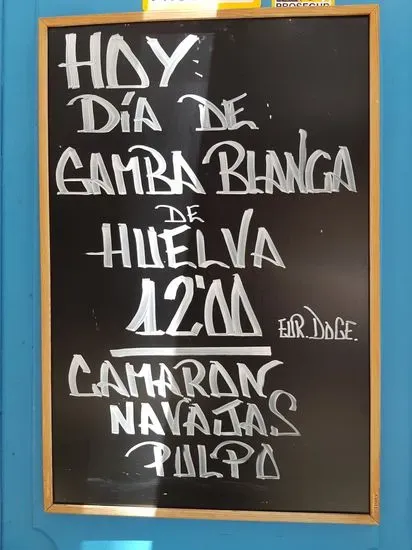 PROSEGUR
HOY
DÍA DE
GAMBA BLANCA
DE
HUELVA
12'00 EUR. DOCE.
CAMARON
NAVAJAS
PULPO